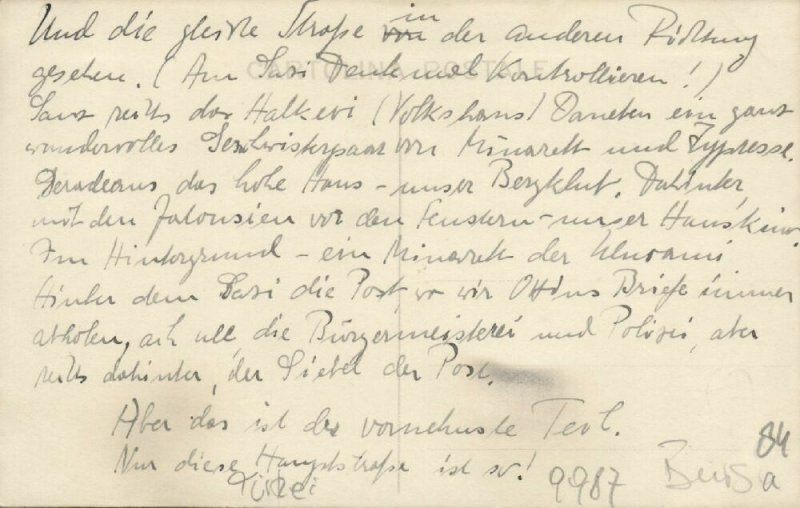 Und die gleiche Straße in der anderen Richtung
CARTOLINA POSTALE
gesehen. (Am Gasi Denkmal kontrollieren!)
Ganz rechts das Halkevi (Volkshaus) Daneben ein ganz
wundervolles Geschwisterpaar von Minarett und Zypresse.
Geradeaus das hohe Haus - unser Bergklub. Dahinter,
mit den Jalousien vor den Fenstern - unser Hauskino.
Im Hintergrund - ein Minarett der Ulucami
Hinter dem Gasi die Post, wo wir Briefe immer
abholen, ach die Bürgermeisterei und Polizei, aber
rechts dahinter, der Giebel der Post.
Aber das ist der vornehmste Teil.
Nur diese Hauptstraße ist so!
Türkei
9987
Bursa
84